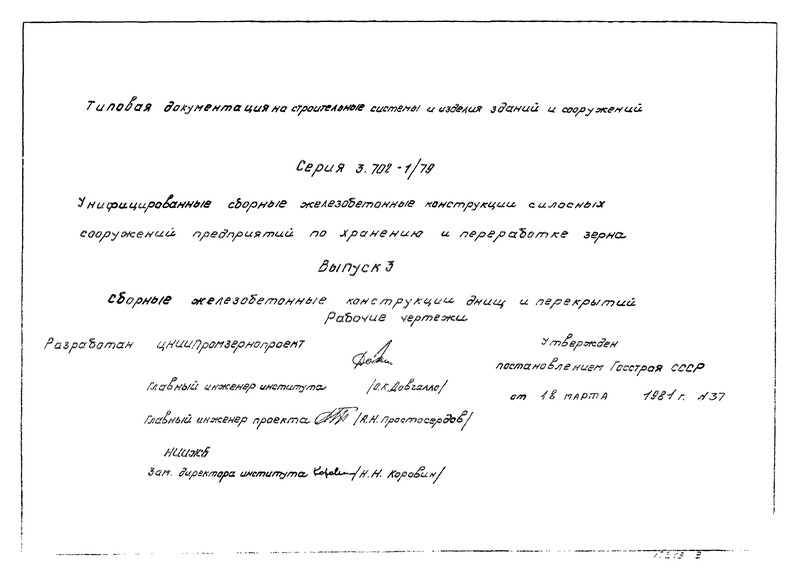 Типовая документация на строительные системы и изделия зданий и сооружений
Серия 3.702-1/79
Унифицированные сборные железобетонные конструкции силосных
сооружений предприятий по хранению и переработке зерна
Выпуск 3
Сборные железобетонные конструкции днищ и перекрытий
Рабочие чертежи
Разработан ЦНИИПромзернопроект
Главный инженер института /О.К.Довгалло/
Главный инженер проекта /А.Н.Простосердов/
НИИЖБ
Зам. директора института /Н.Н. Коровин/
Утвержден
постановлением Госстроя СССР
от 18 марта 1981 г. N37